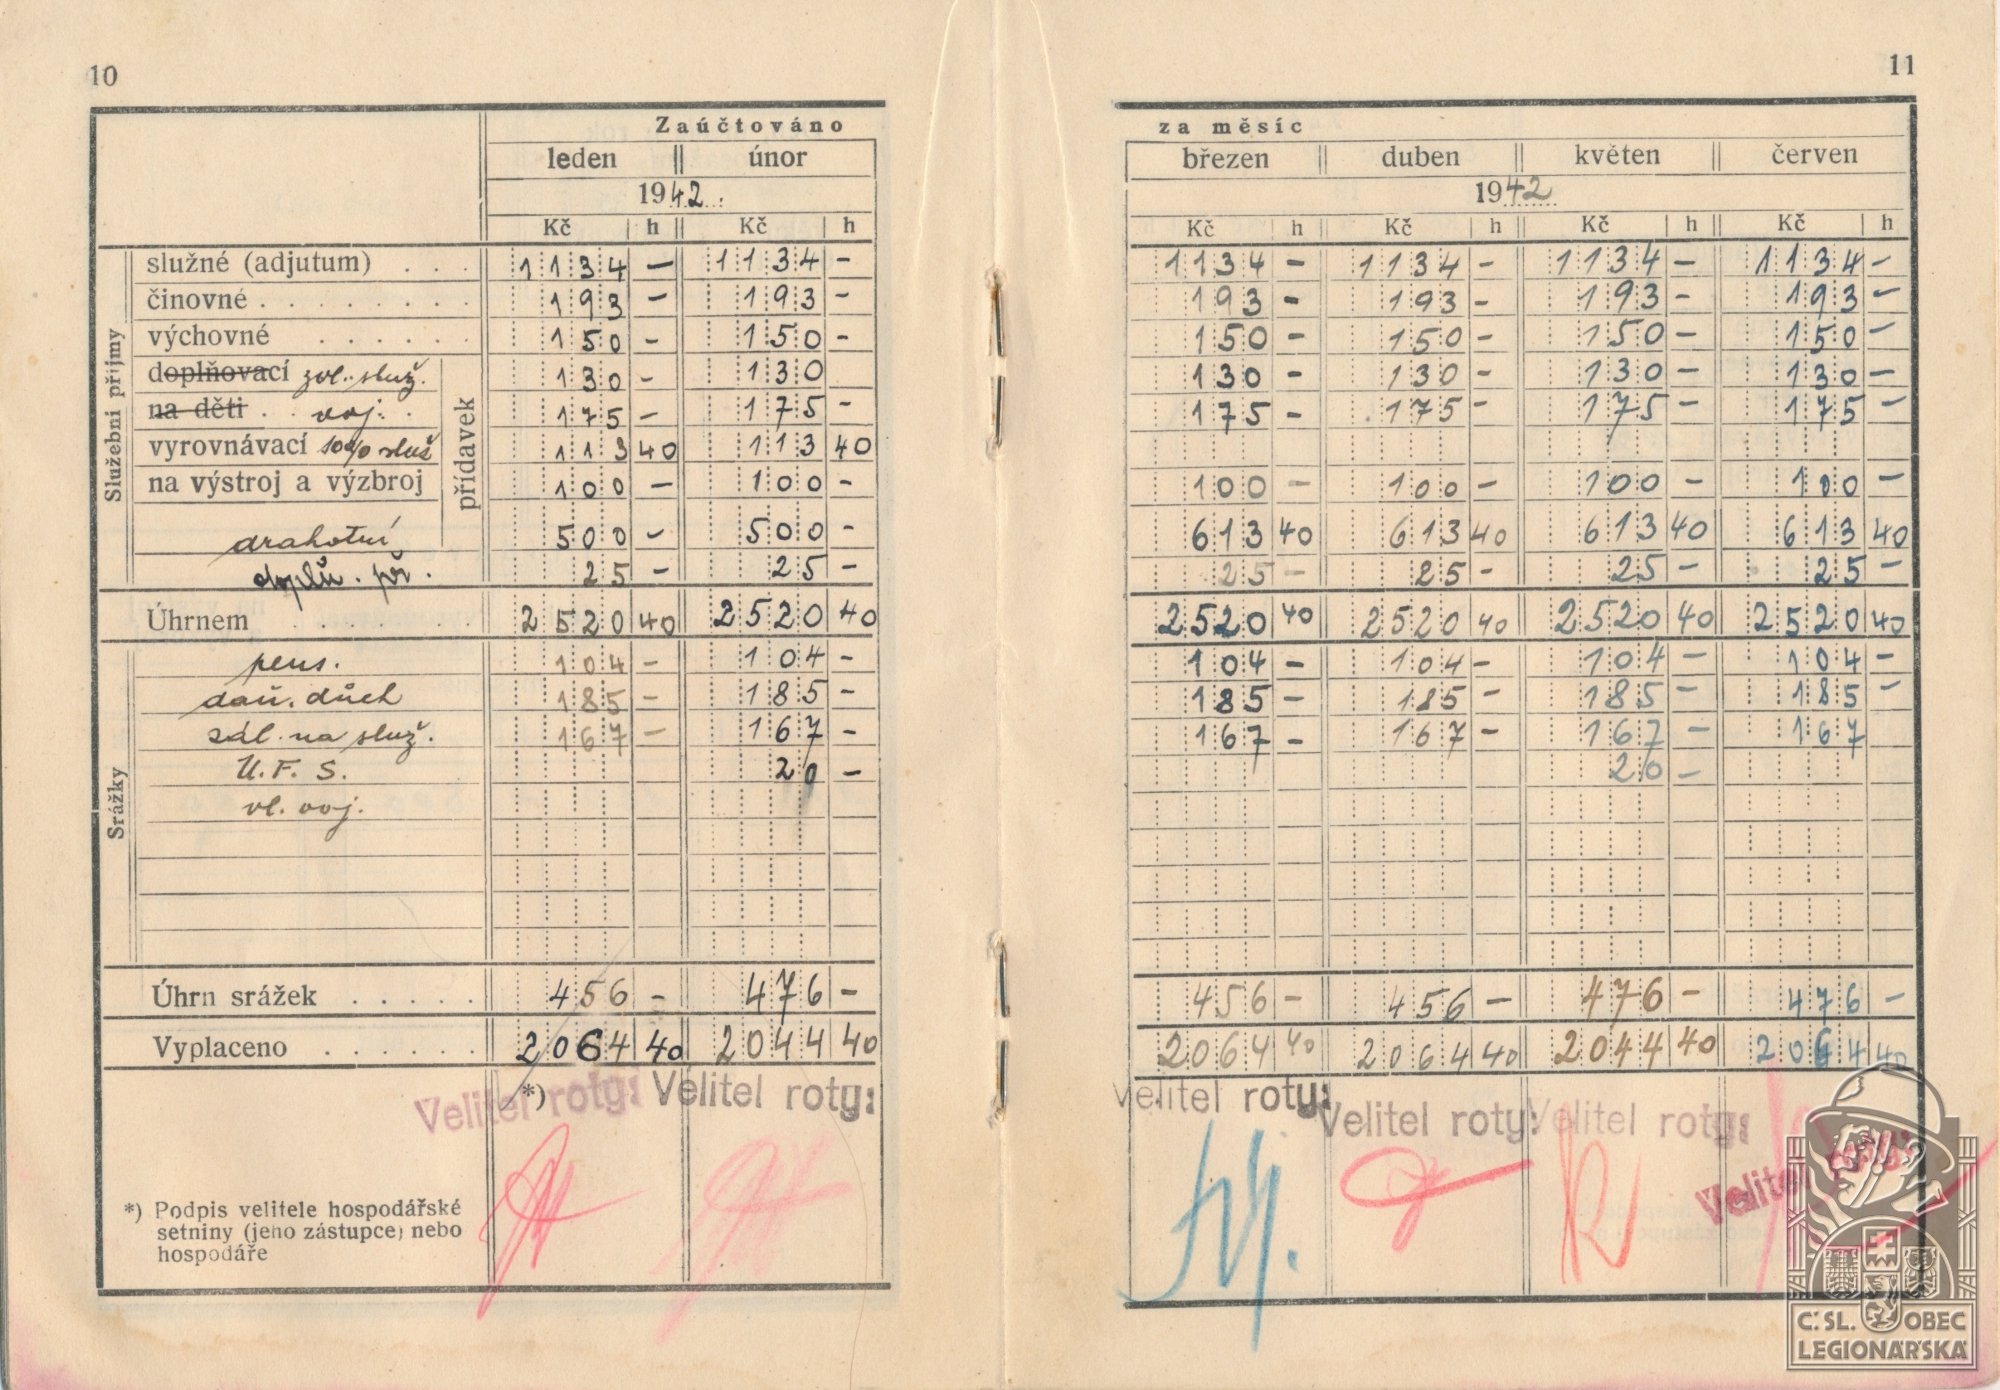 10
Zaúčtováno
leden únor
1942
Kč h Kč h
Služební příjmy
přídavek
služné (adjutum) . . . 1134 — 1134 —
činovné . . . . . . . . 193 — 193 —
výchovné . . . . . . 150 — 150 —
doplňovací zvl. služ. 130 — 130
na děti . . voj. . 175 — 175 —
vyrovnávací 10% služ 113 40 113 40
na výstroj a výzbroj 100 — 100 —
drahotní 500 — 500 —
doplň. př. 25 — 25 —
Úhrnem . . . . . 2520 40 2520 40
Srážky
pens. 104 — 104 —
daň. důch 185 — 185 —
zál. na služ. 167 — 167 —
U. F. S. 20 —
vl. voj.
Úhrn srážek . . . . . 456 — 476 —
Vyplaceno . . . . . . 2064 40 2044 40
*)
Velitel roty: Velitel roty:
*) Podpis velitele hospodářské
setniny (jeho zástupce) nebo
hospodáře
11
za měsíc
březen duben květen červen
1942
Kč h Kč h Kč h Kč h
1134 — 1134 — 1134 — 1134 —
193 — 193 — 193 — 193 —
150 — 150 — 150 — 150 —
130 — 130 — 130 — 130 —
175 — 175 — 175 — 175 —
100 — 100 — 100 — 100 —
613 40 613 40 613 40 613 40
25 — 25 — 25 — 25 —
2520 40 2520 40 2520 40 2520 40
104 — 104 — 104 — 104 —
185 — 185 — 185 — 185 —
167 — 167 — 167 — 167
20 —
456 — 456 — 476 — 476 —
2064 40 2064 40 2044 40 2064 40
Velitel roty: Velitel roty: Velitel roty:
Velitel
Č. SL. OBEC
LEGIONÁŘSKÁ